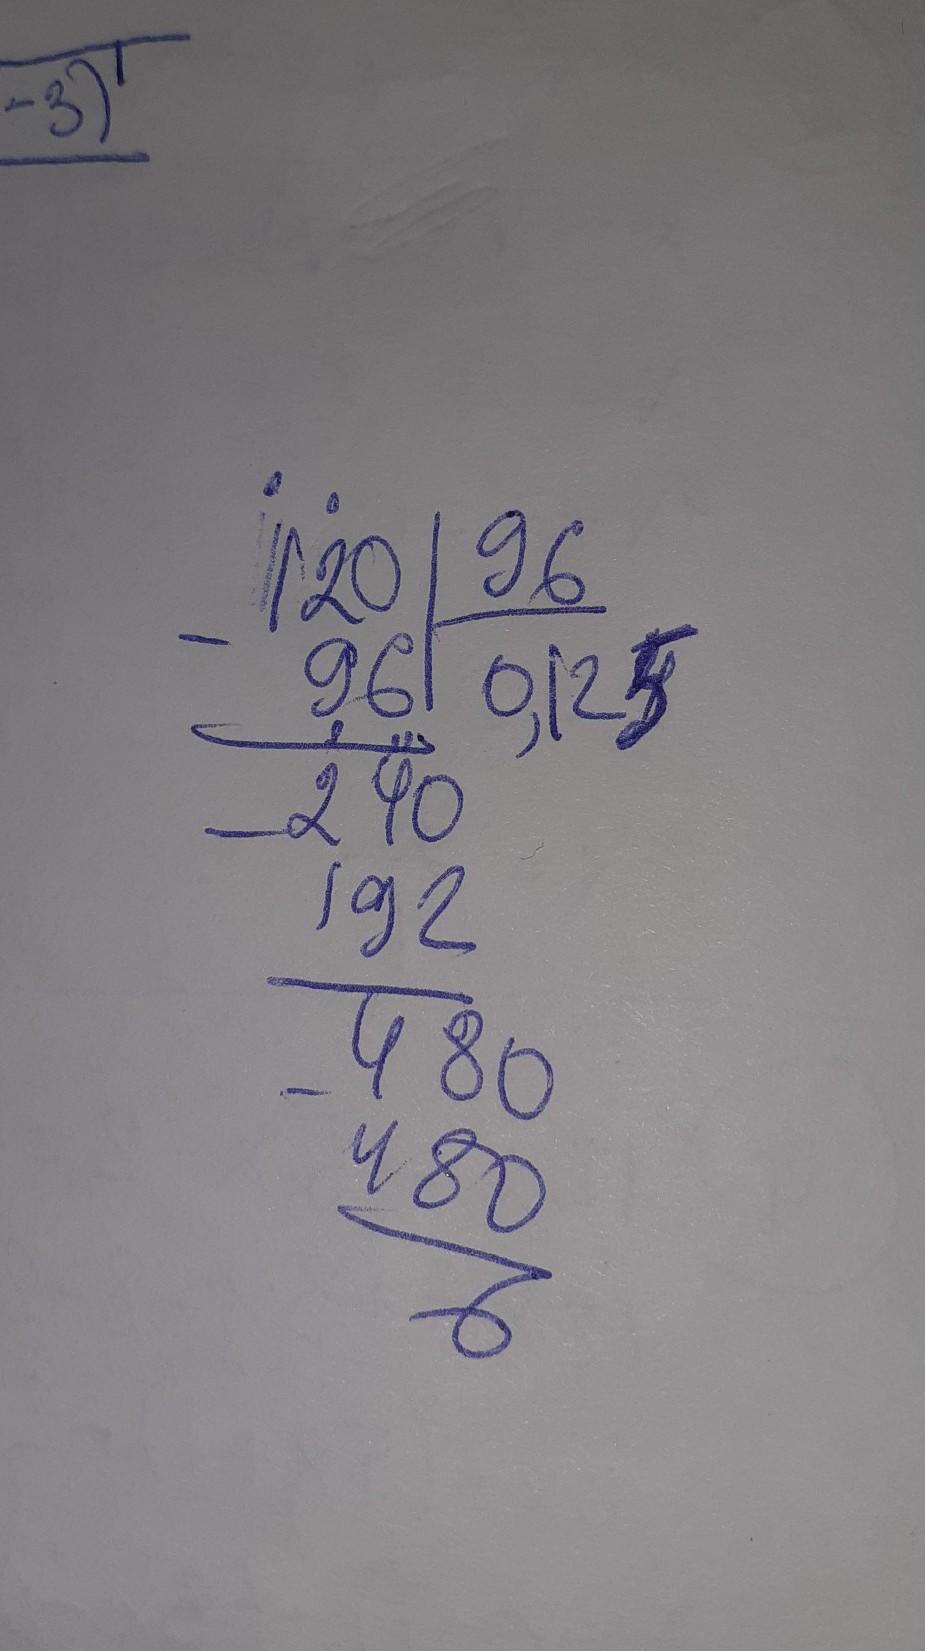 -3)
120 | 96
- 96 | 0,125
240
- 192
480
- 480
0